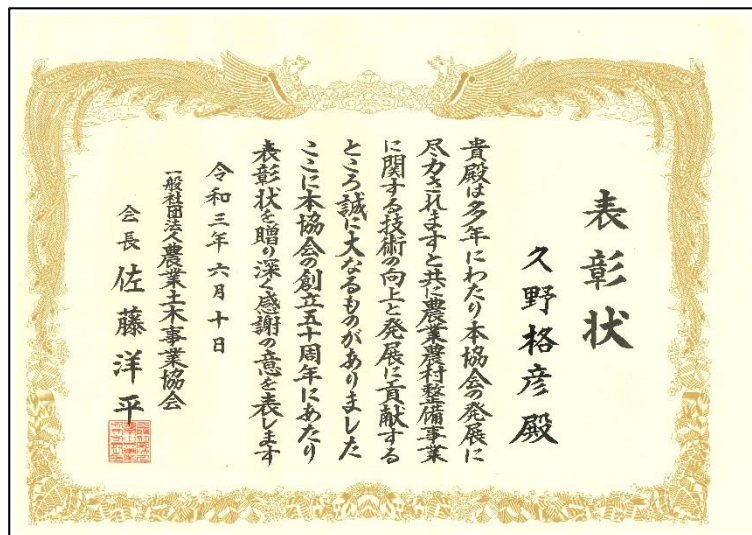 表彰状
久野格彦殿
貴殿は多年にわたり本協会の発展に
尽力されますと共に農業農村整備事業
に関する技術の向上と発展に貢献する
ところ誠に大なるものがありました
ここに本協会の創立五十周年にあたり
表彰状を贈り深く感謝の意を表します
令和三年六月十日
一般社団法人農業土木事業協会
会長 佐藤洋平